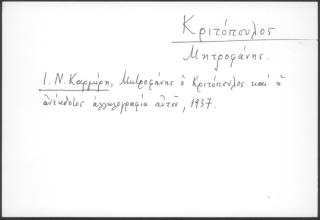 Κριτόπουλος
Μητροφάνης.
Ι. Ν. Καρμίρη, Μητροφάνης ὁ Κριτόπουλος καὶ ἡ
ἀνέκδοτος ἀλληλογραφία αὐτοῦ, 1937.